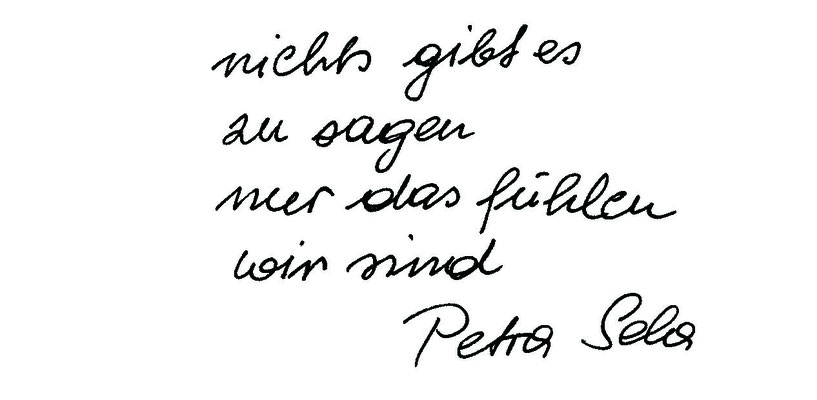 nichts gibt es
zu sagen
nur das fühlen
wir sind
Petra Sela